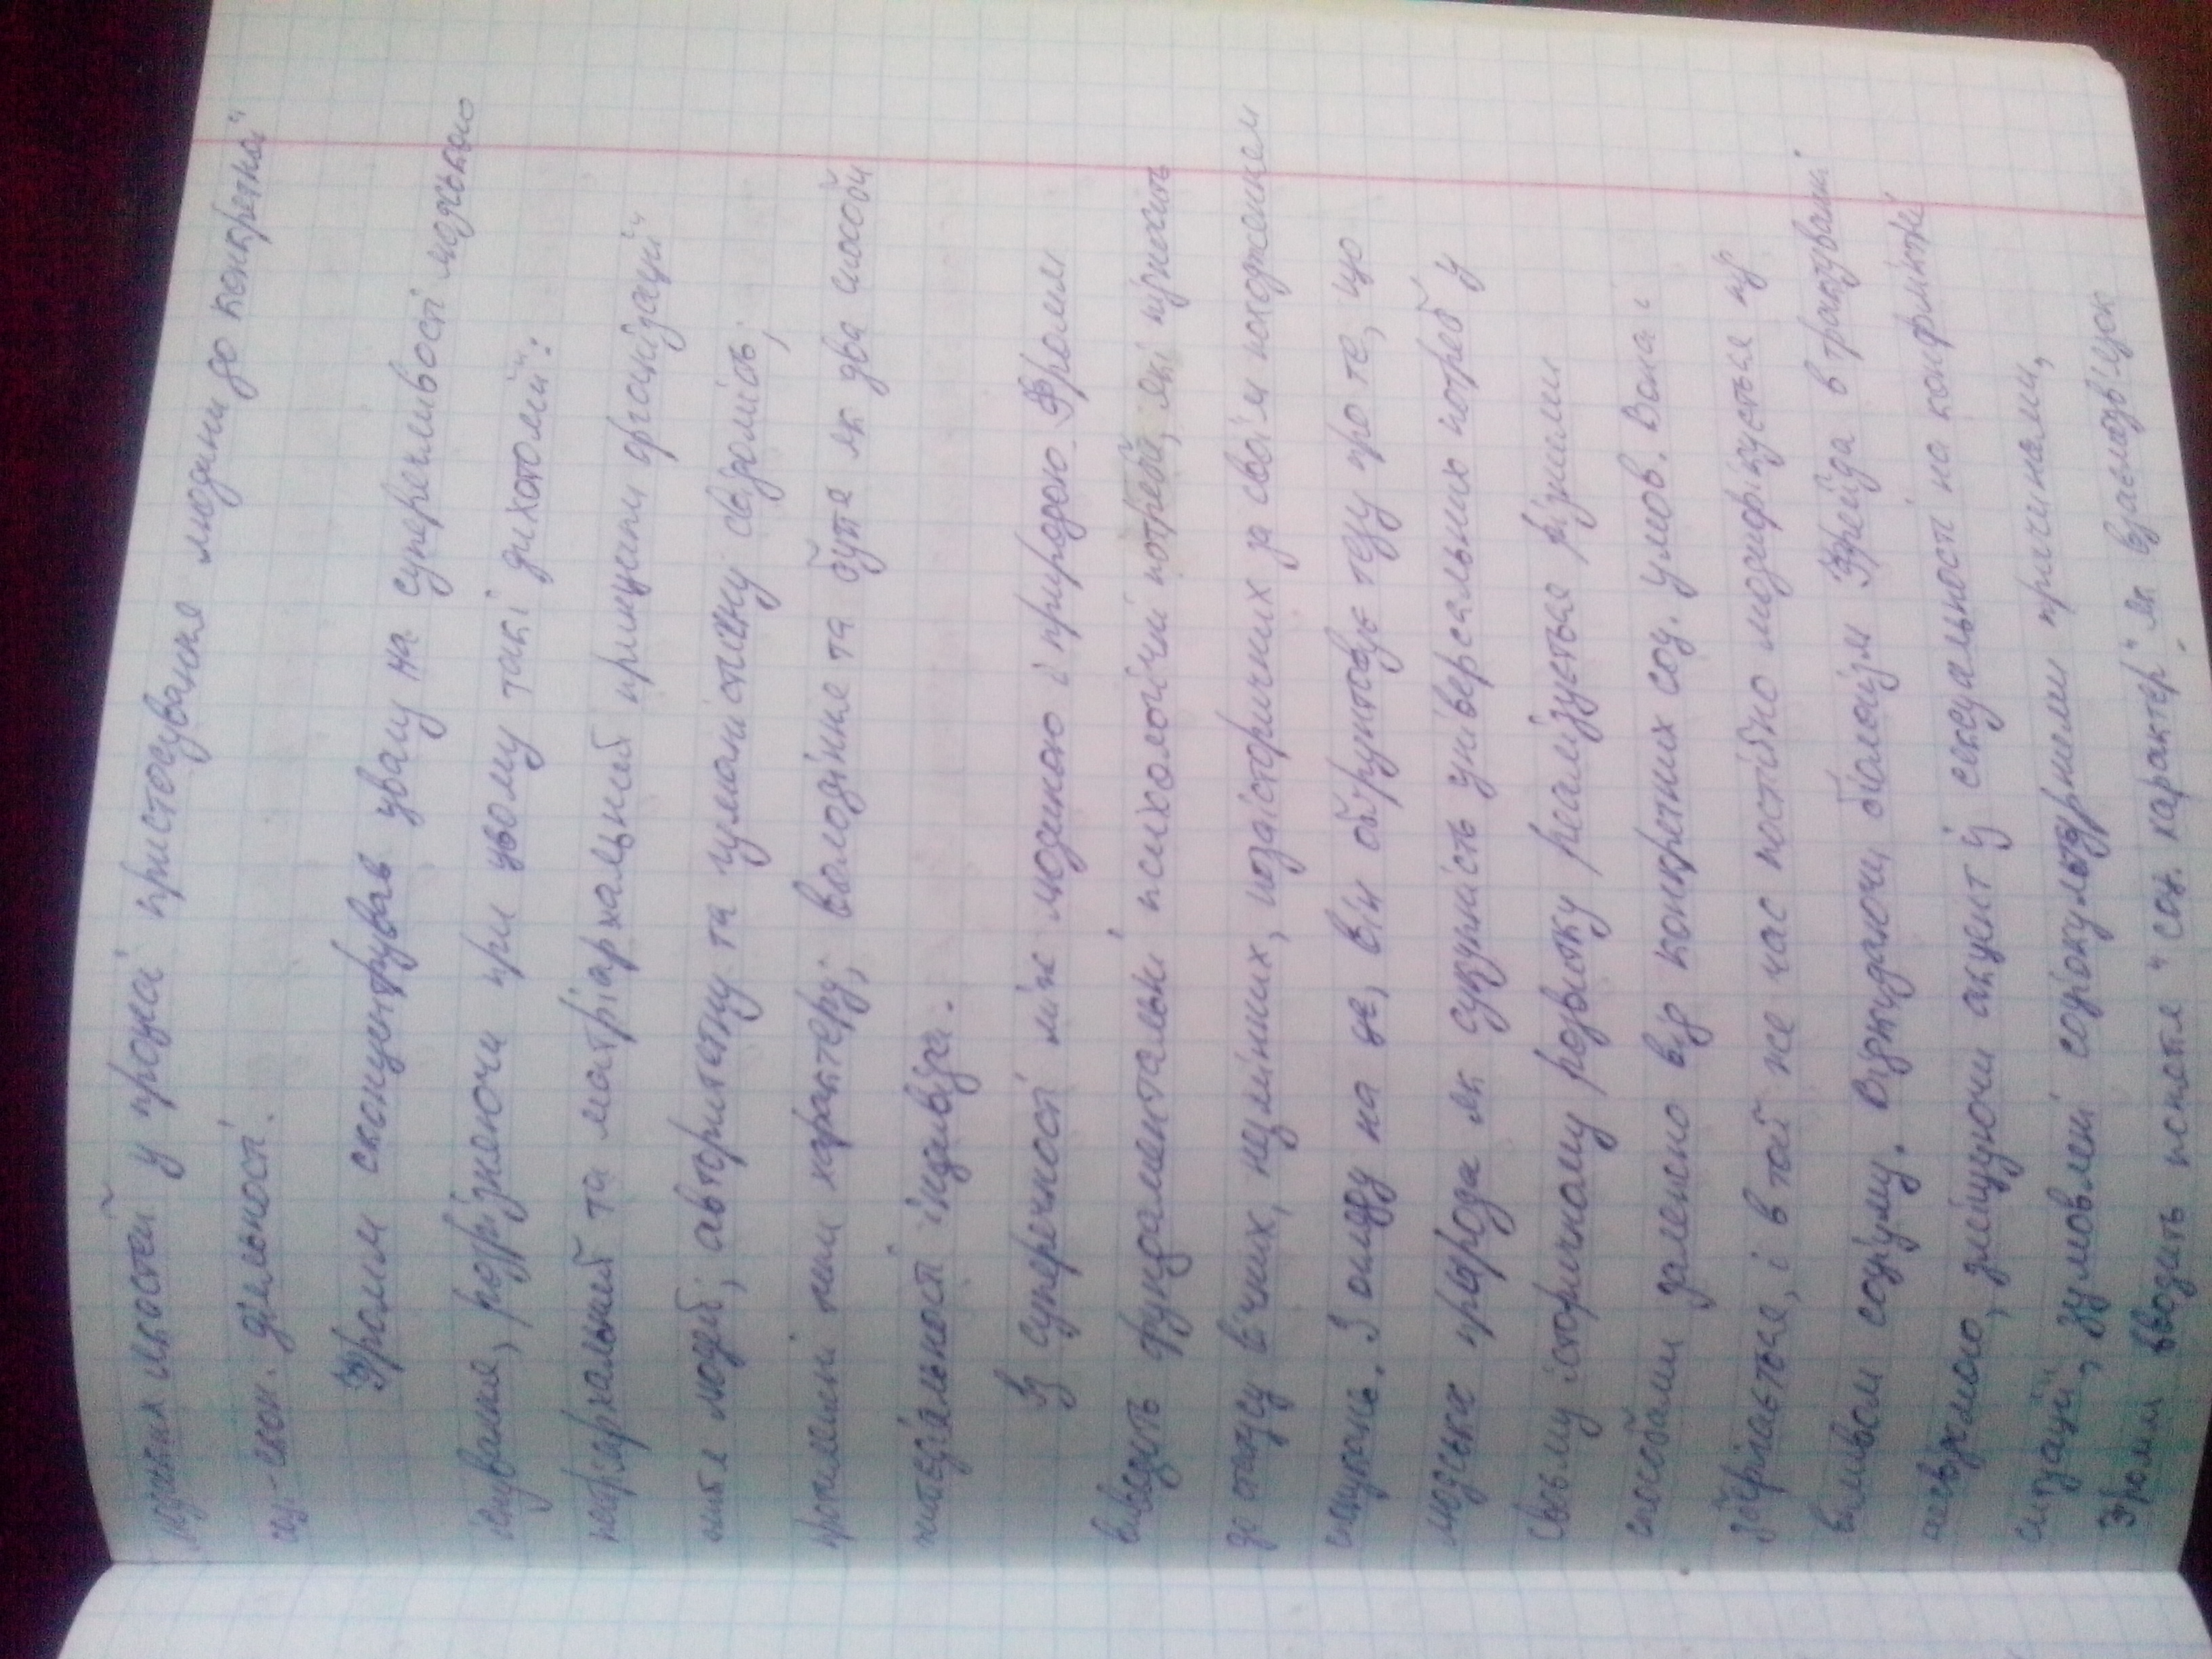 людських якостей у процесі пристосування людини до конкретної
соц.-екон. діяльності.
Фромм сконцентрував увагу на суперечливості людського
існування, розрізняючи при цьому такі дихотомії:
патріархальний та матріархальний принципи організації
життя людей; авторитетну та гуманістичну свідомість;
протилежні типи характеру; володіння та буття як два способи
життєдіяльності індивіда.
Із суперечності між людиною і природою Фромм
виводить фундаментальні психологічні потреби, які підносить
до статусу вічних, незмінних, позаісторичних за своїм походженням
спонукань. З огляду на це, він обґрунтовує тезу про те, що
людська природа як сукупність універсальних потреб у
своєму історичному розвитку реалізується різними
способами залежно від конкретних соц. умов. Вона і
зберігається, і в той же час постійно модифікується під
впливом соціуму. Відкидаючи біологізм Фрейда в трактуванні
несвідомого, зміщуючи акцент із сексуальності на конфліктні
ситуації, зумовлені соціокультурними причинами,
Фромм вводить поняття "соц. характер" як взаємозв'язок